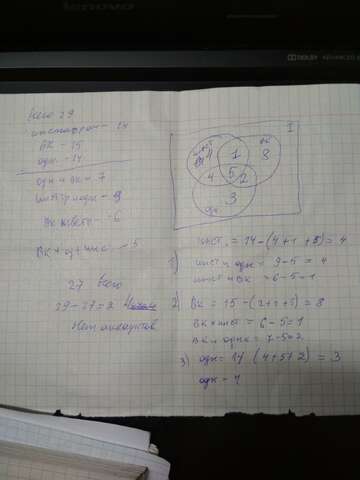 Всего 29
инстаграм - 14
ВК - 15
одн - 14
одн и вк = 7
инст и одн - 9
Вк и инст - 6
Вк + од + инс - 5
27 всего
29 - 27 = 2 человек
Нет аккаунтов
I
инст
4
1
вк
8
4
5
2
3
одн
1)
инст. = 14 - (4 + 1 + 5) = 4
инст и одн = 9 - 5 = 4
инст и вк = 6 - 5 = 1
2)
ВК = 15 - (2 + 1 + 5) = 8
вк и инс = 6 - 5 = 1
вк и одн = 7 - 5 = 2
3) одн = 14 (4 + 5 + 2) = 3
одн - 4
DOLBY
ADVANCED